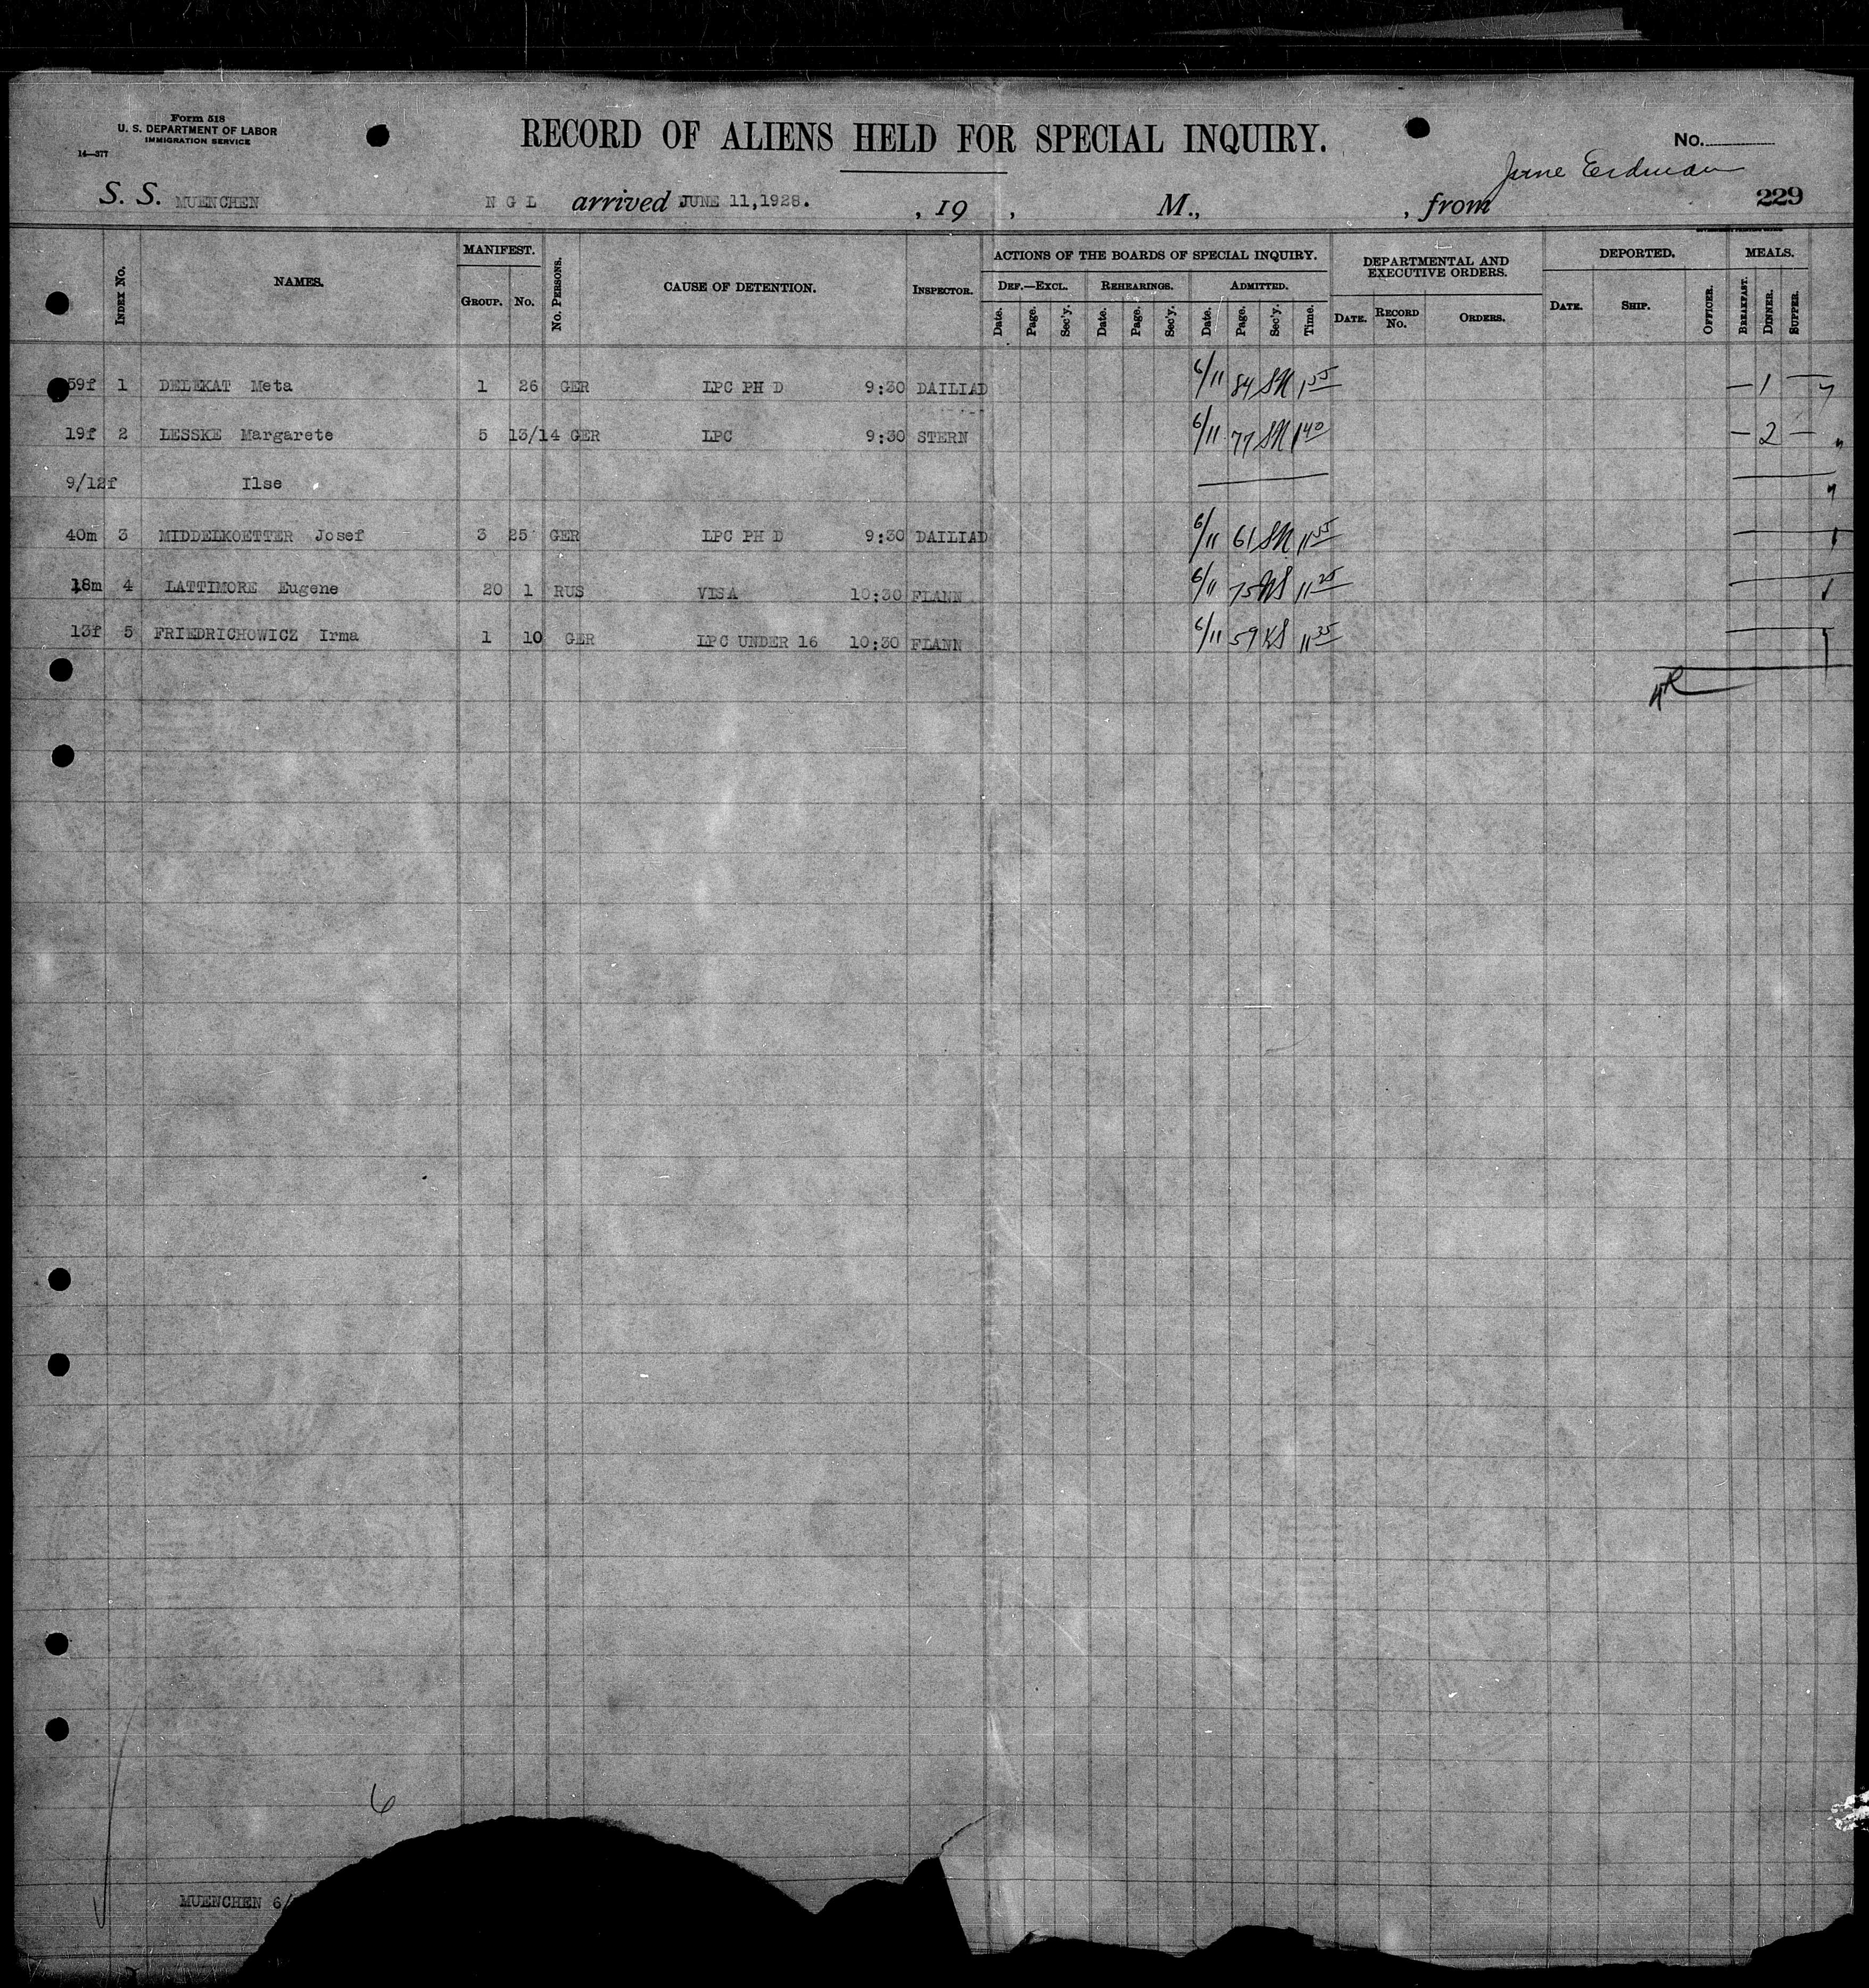 Form 518
U. S. DEPARTMENT OF LABOR
IMMIGRATION SERVICE
14—377
RECORD OF ALIENS HELD FOR SPECIAL INQUIRY.
No.
Jane Erdman
S. S. MUENCHEN N G L arrived JUNE 11,1928. , 19 , M., , from 229
INDEX No. NAMES. MANIFEST. No. PERSONS. CAUSE OF DETENTION. INSPECTOR. ACTIONS OF THE BOARDS OF SPECIAL INQUIRY. DEPARTMENTAL AND EXECUTIVE ORDERS. DEPORTED. MEALS.
GROUP. No. DEF.—EXCL. REHEARINGS. ADMITTED.
Date. Page. Sec'y. Date. Page. Sec'y. Date. Page. Sec'y. Time. DATE. RECORD No. ORDERS. DATE. SHIP. OFFICER. BREAKFAST. DINNER. SUPPER.
59f 1 DELEKAT Meta 1 26 GER LPC PH D 9:30 DAILIAD 6/11 84 SN 1 55 — 1 —
19f 2 LESSKE Margarete 5 13/14 GER LPC 9:30 STERN 6/11 77 SN 1 40 — 2 —
9/12f Ilse
40m 3 MIDDELKOETTER Josef 3 25 GER LPC PH D 9:30 DAILIAD 6/11 61 SN 11 55
18m 4 LATTIMORE Eugene 20 1 RUS VISA 10:30 FLANN 6/11 75 11 25
13f 5 FRIEDRICHOWICZ Irma 1 10 GER LPC UNDER 16 10:30 FLANN 6/11 59 KS 11 35
6
MUENCHEN 6/